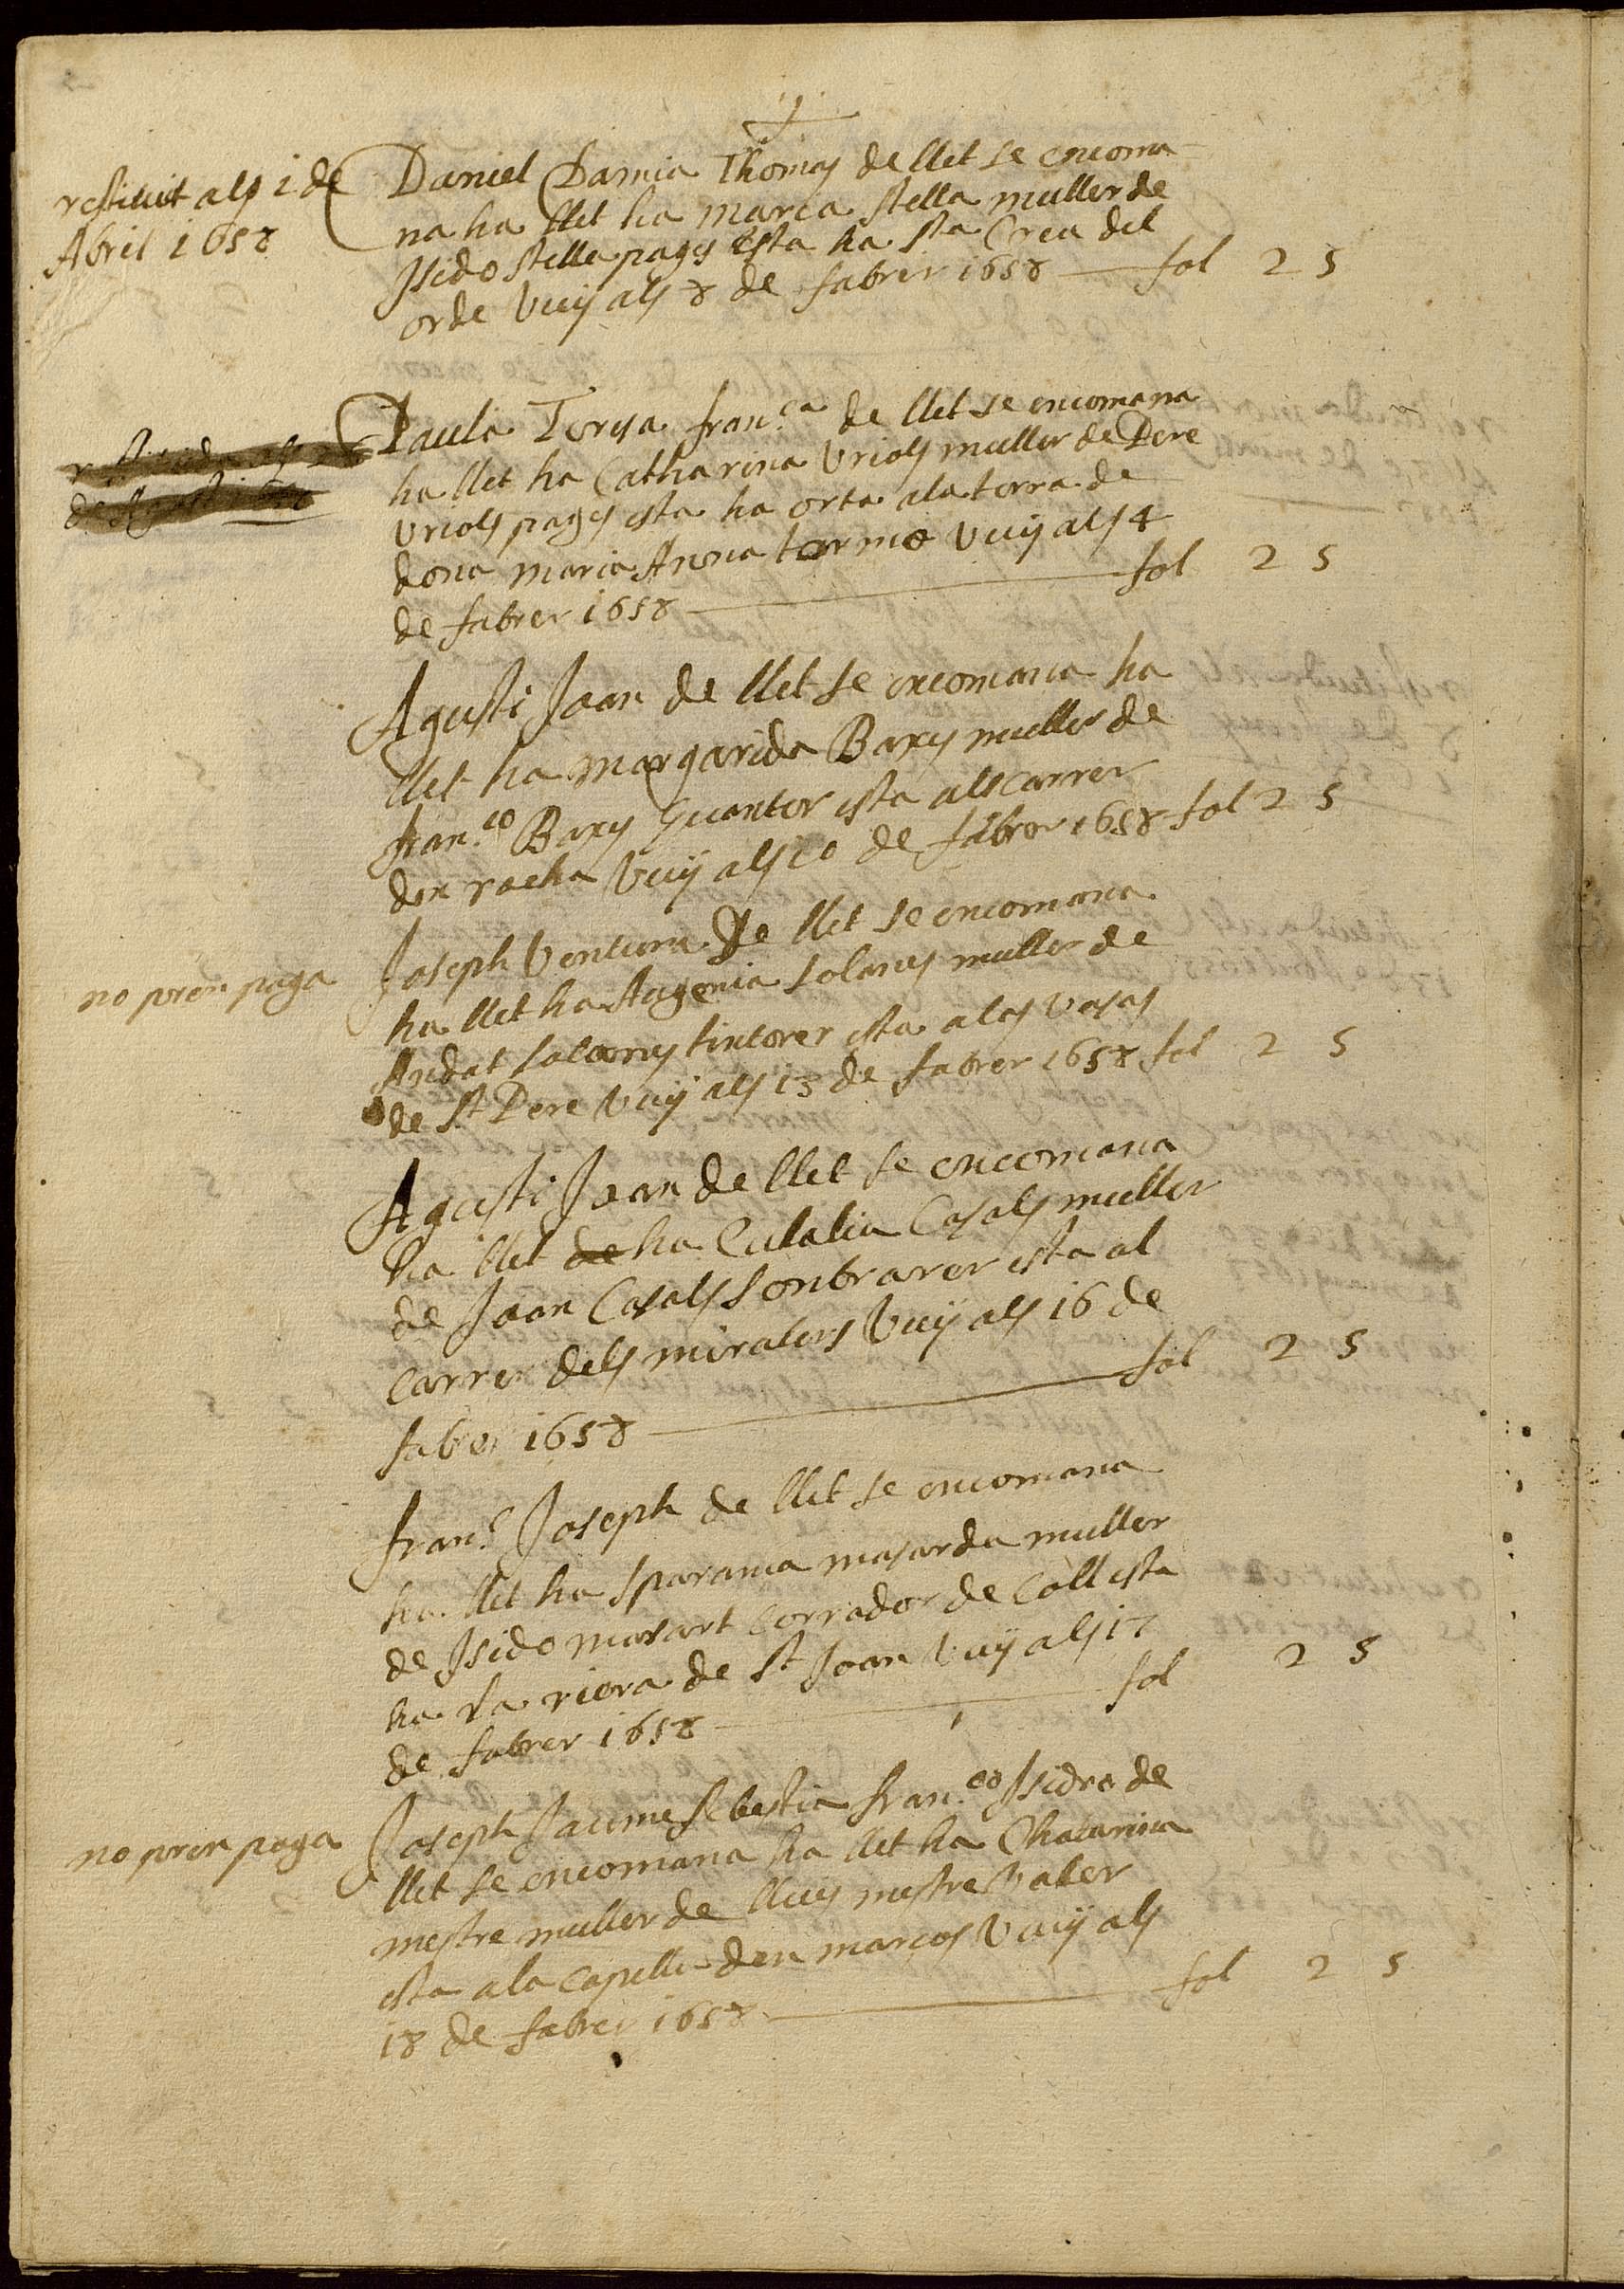 restituit als 1 de
Abril 1658
Daniel Damia Thomas de llet se encoma
na ha llet ha maria stella muller de
Isido stella pages esta ha sta Creu del
orde vuy als 8 de fabrer 1658 fol 25
de Agost 1658
Paula Toresa fran.ca de llet se encomana
ha llet ha Catharina Vriols muller de Pere
vriols pages esta ha orta ala torra de
dona maria Anna tormo vuy als 4
de fabrer 1658 fol 25
Agusti Joan de llet se encomana ha
llet ha margarida Baxes muller de
fran.co Baxes Guanter esta als carrer
den rocha vuy als 10 de fabrer 1658 fol 25
no pren paga
Joseph Ventura de llet se encomana
ha llet ha Augenia solanes muller de
Andat solanes tintorer esta ales vasas
de St Pere vuy als 13 de fabrer 1658 fol 25
Agusti Joan de llet se encomana
ha llet de ha Eulalia Casals muller
de Joan Casals sonbrarer esta al
carrer dels miralers vuy als 16 de
fabrer 1658 fol 25
fran.c Joseph de llet se encomana
ha llet ha sparansa masarda muller
de Isido masart corrador de Coll esta
ha la riera de St Joan vuy als 17
de fabrer 1658 fol 25
no pren paga
Joseph Jaume sebastia fran.co Isidro de
llet se encomana ha llet ha Chatarina
mestre muller de lluis mestre valer
esta ala capella den marcos vuy als
18 de fabrer 1658 fol 25